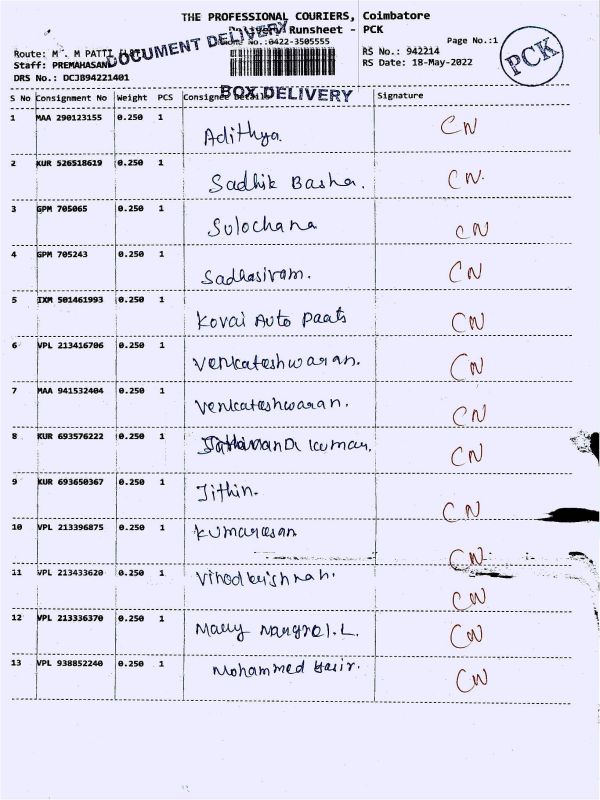 THE PROFESSIONAL COURIERS, Coimbatore
Runsheet - PCK
No.:0422-3505555
Page No.:1
PCK
DOCUMENT DELIVERY
Route: M . M PATTI
RS No.: 942214
Staff: PREMAHASAN
RS Date: 18-May-2022
DRS No.: DCJB94221401
BOX DELIVERY
S No Consignment No Weight PCS Consignee Details Signature
1 MAA 290123155 0.250 1 Adithya CN
2 KUR 526518619 0.250 1 Sadhik Basha. CN
3 GPM 705065 0.250 1 Sulochana CN
4 GPM 705243 0.250 1 Sadhasivam. CN
5 IXM 501461993 0.250 1 Kovai Auto Paats CN
6 VPL 213416706 0.250 1 Venkateshwaran. CN
7 MAA 941532404 0.250 1 Venkateshwaran. CN
8 KUR 693576222 0.250 1 kumar. CN
9 KUR 693650367 0.250 1 Jithin. CN
10 VPL 213396875 0.250 1 Kumarasan CN
11 VPL 213433620 0.250 1 Vinodkrishnan. CN
12 VPL 213336370 0.250 1 Mary L. CN
13 VPL 938852240 0.250 1 Mohammed CN